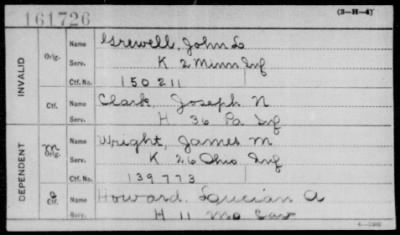 161726
(3-H-4)
INVALID
Orig.
Name Grewell, John L
Serv. K 2 Minn Inf
Ctf. No. 150211
Ctf.
Name Clark, Joseph N
Serv. H 36 Pa Inf
DEPENDENT
M
Orig.
Name Wright, James M
Serv. K 26 Ohio Inf
Ctf. No. 139773
Ctf.
Name Howard, Lucian A
Serv. H 11 Mo Cav